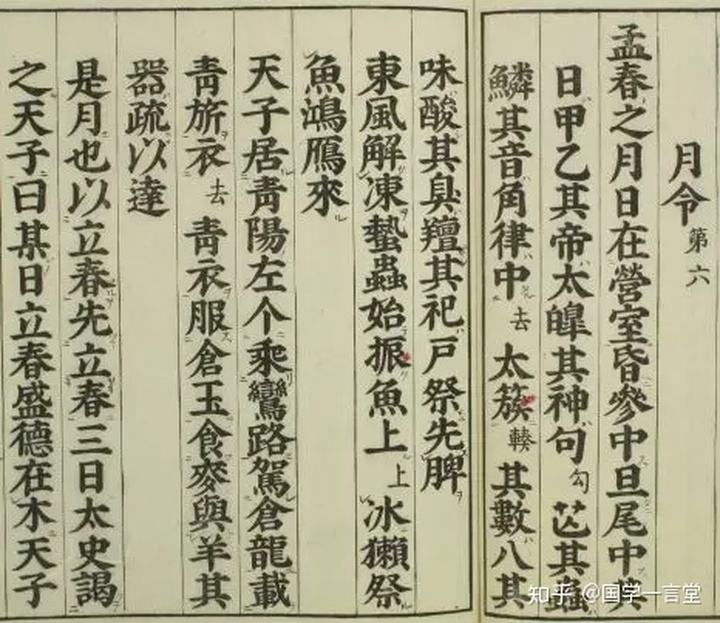 月令第六
孟春之月日在營室昏參中旦尾中其
日甲乙其帝太皞其神句勾芒其蟲
鱗其音角律中去太簇輳其數八其
味酸其臭羶其祀戶祭先脾
東風解凍蟄蟲始振魚上上冰獺祭
魚鴻鴈來
天子居靑陽左个乘鸞路駕倉龍載
靑旂衣去靑衣服倉玉食麥與羊其
器疏以達
是月也以立春先立春三日太史謁
之天子曰某日立春盛德在木天子
知乎 @国学一言堂